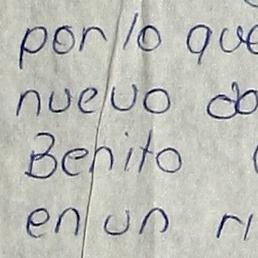 por lo que
nuevo do
Benito
en un ri